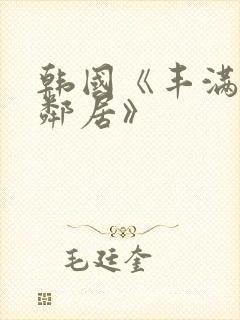 韩国《丰满
邻居》
毛廷奎